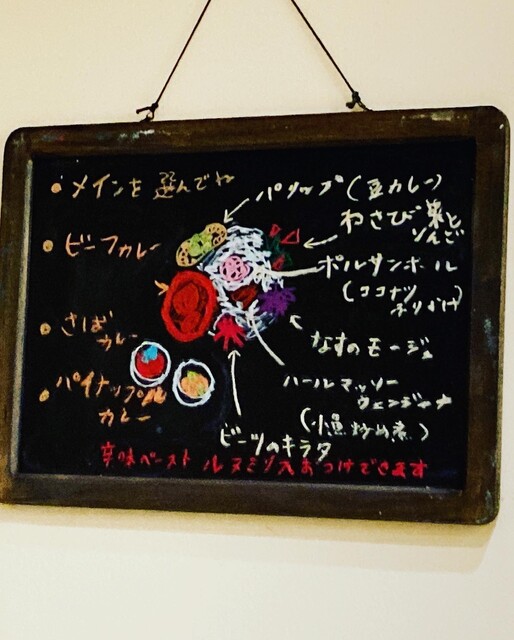 メインを選んでね
ビーフカレー
さば
カレー
パイナップル
カレー
パリップ(豆カレー)
わさび菜と
りんご
ポルサンボール
(ココナツ
ふりかけ)
なすのモージュ
ハールマッソー
ウェンジャナ
(小魚炒め煮)
ビーツのキラタ
辛味ペースト ルヌミリス おつけできます